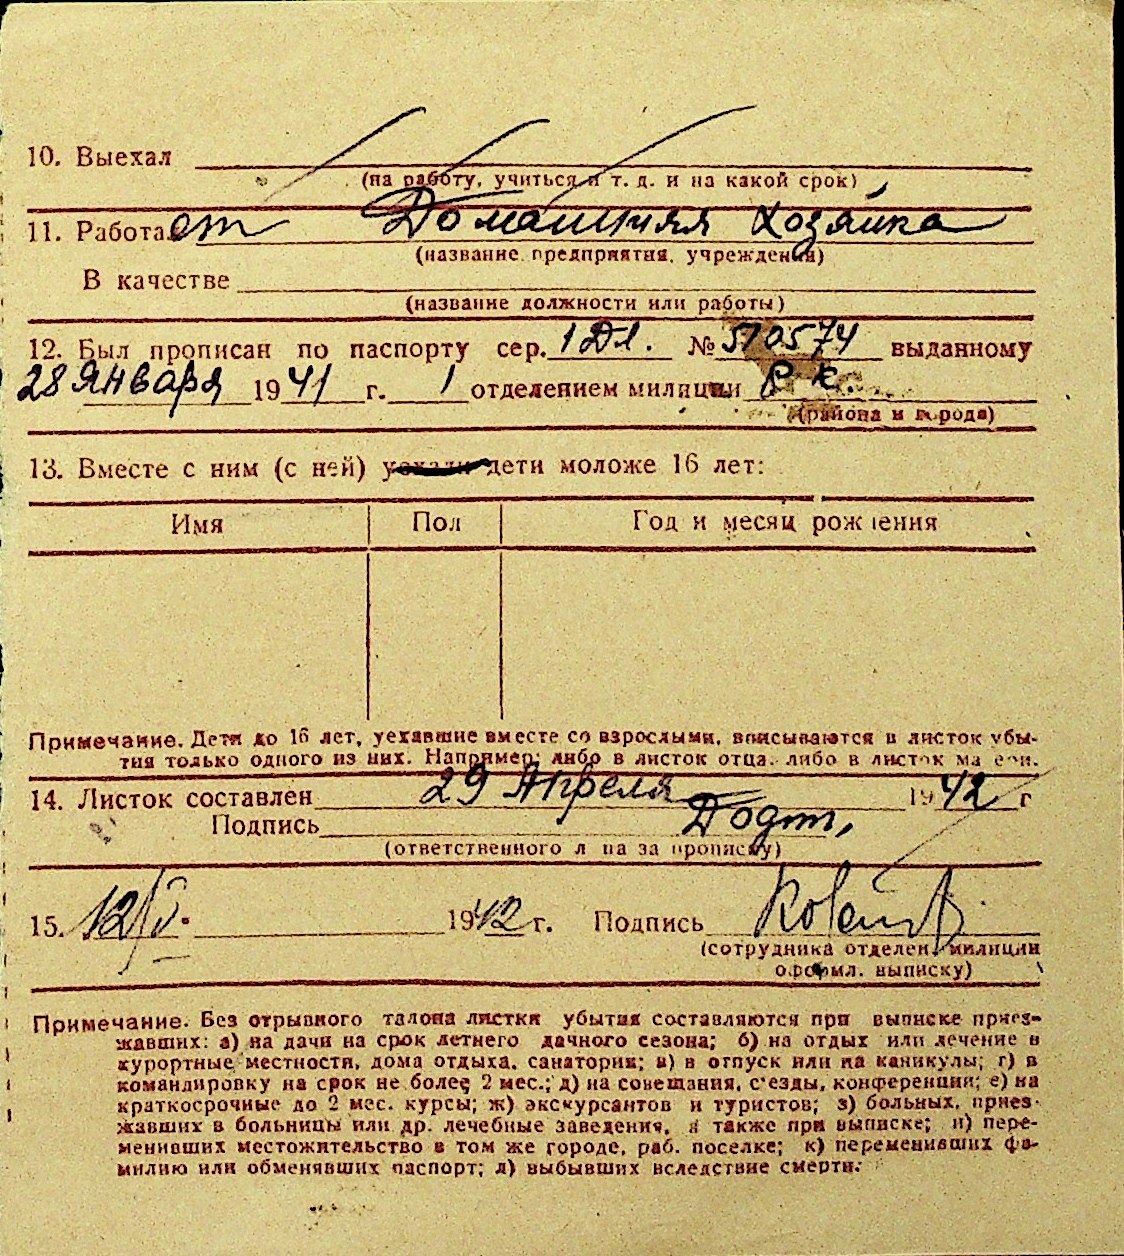 10. Выехал
(на работу, учиться и т. д. и на какой срок)
11. Работает Домашняя хозяйка
(название предприятия, учреждения)
В качестве
(название должности или работы)
12. Был прописан по паспорту сер. 1 Дл. № 510574 выданному
28 Января 1941 г. 1 отделением милиции Р. К.
(района и города)
13. Вместе с ним (с ней) уехали дети моложе 16 лет:
Имя Пол Год и месяц рождения
Примечание. Дети до 16 лет, уехавшие вместе со взрослыми, вписываются в листок убы-
тия только одного из них. Например: либо в листок отца, либо в листок матери.
14. Листок составлен 29 Апреля 1942 г
Подпись
(ответственного лица за прописку)
15. 12/V. 1942 г. Подпись
(сотрудника отделен. милиции
оформл. выписку)
Примечание. Без отрывного талона листки убытия составляются при выписке приез-
жавших: а) на дачи на срок летнего дачного сезона; б) на отдых или лечение в
курортные местности, дома отдыха, санатории; в) в отпуск или на каникулы; г) в
командировку на срок не более 2 мес.; д) на совещания, с'езды, конференции; е) на
краткосрочные до 2 мес. курсы; ж) экскурсантов и туристов; з) больных, приез-
жавших в больницы или др. лечебные заведения, а также при выписке; и) пере-
менивших местожительство в том же городе, раб. поселке; к) переменивших фа-
милию или обменявших паспорт; л) выбывших вследствие смерти.